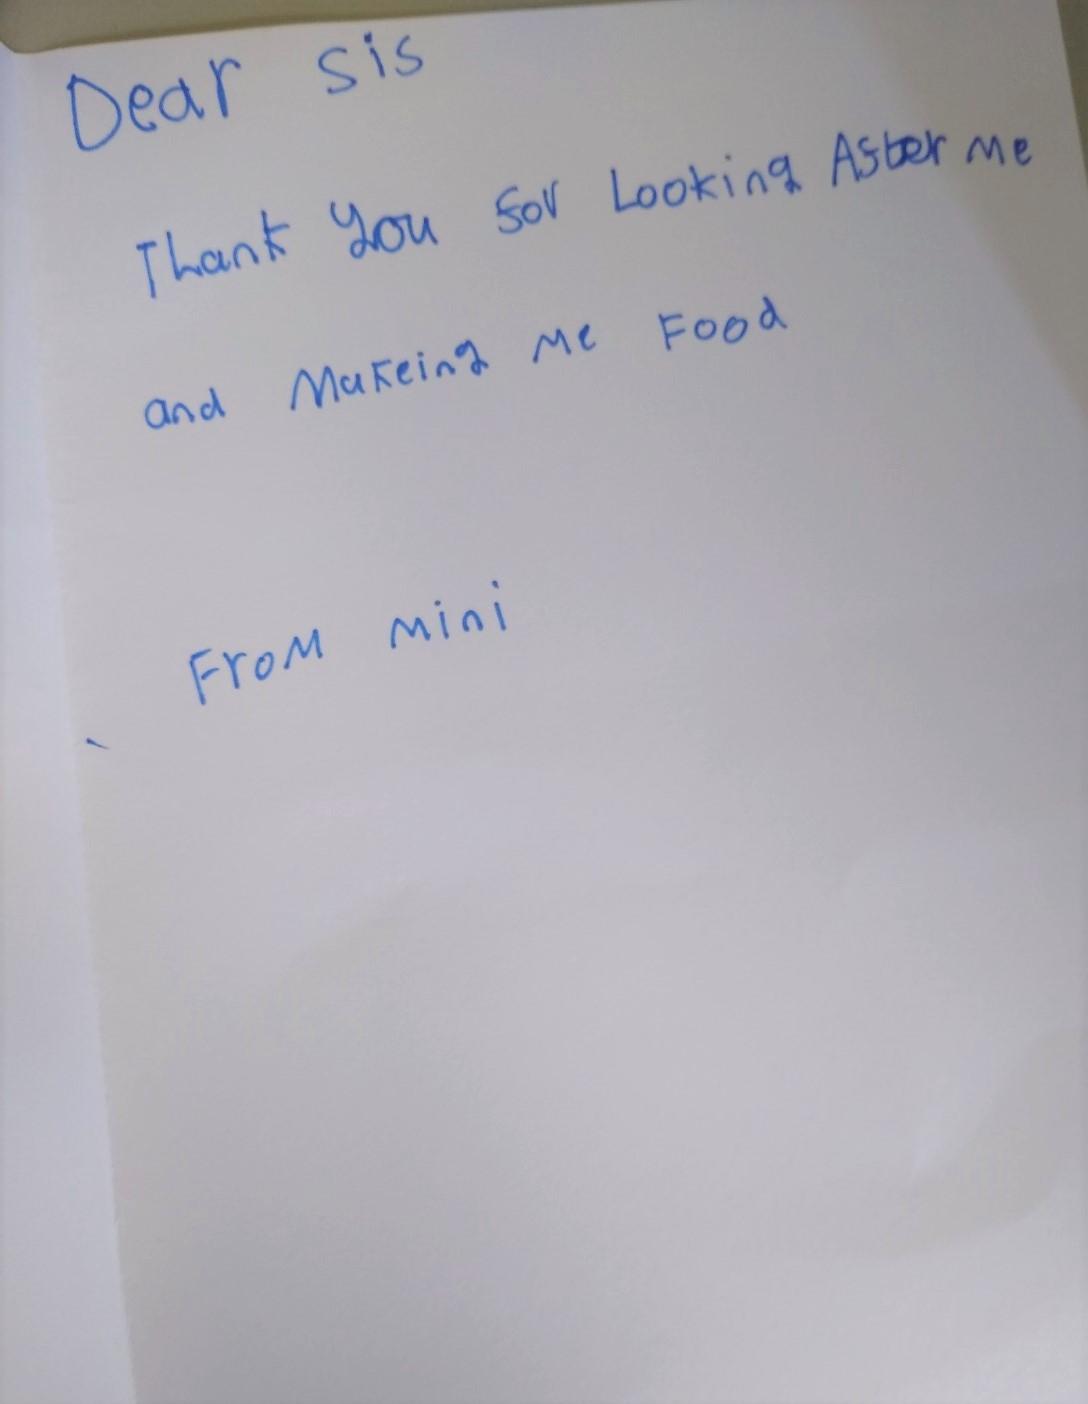 Dear sis
Thank you for Looking After me
and Makeing me Food
From mini